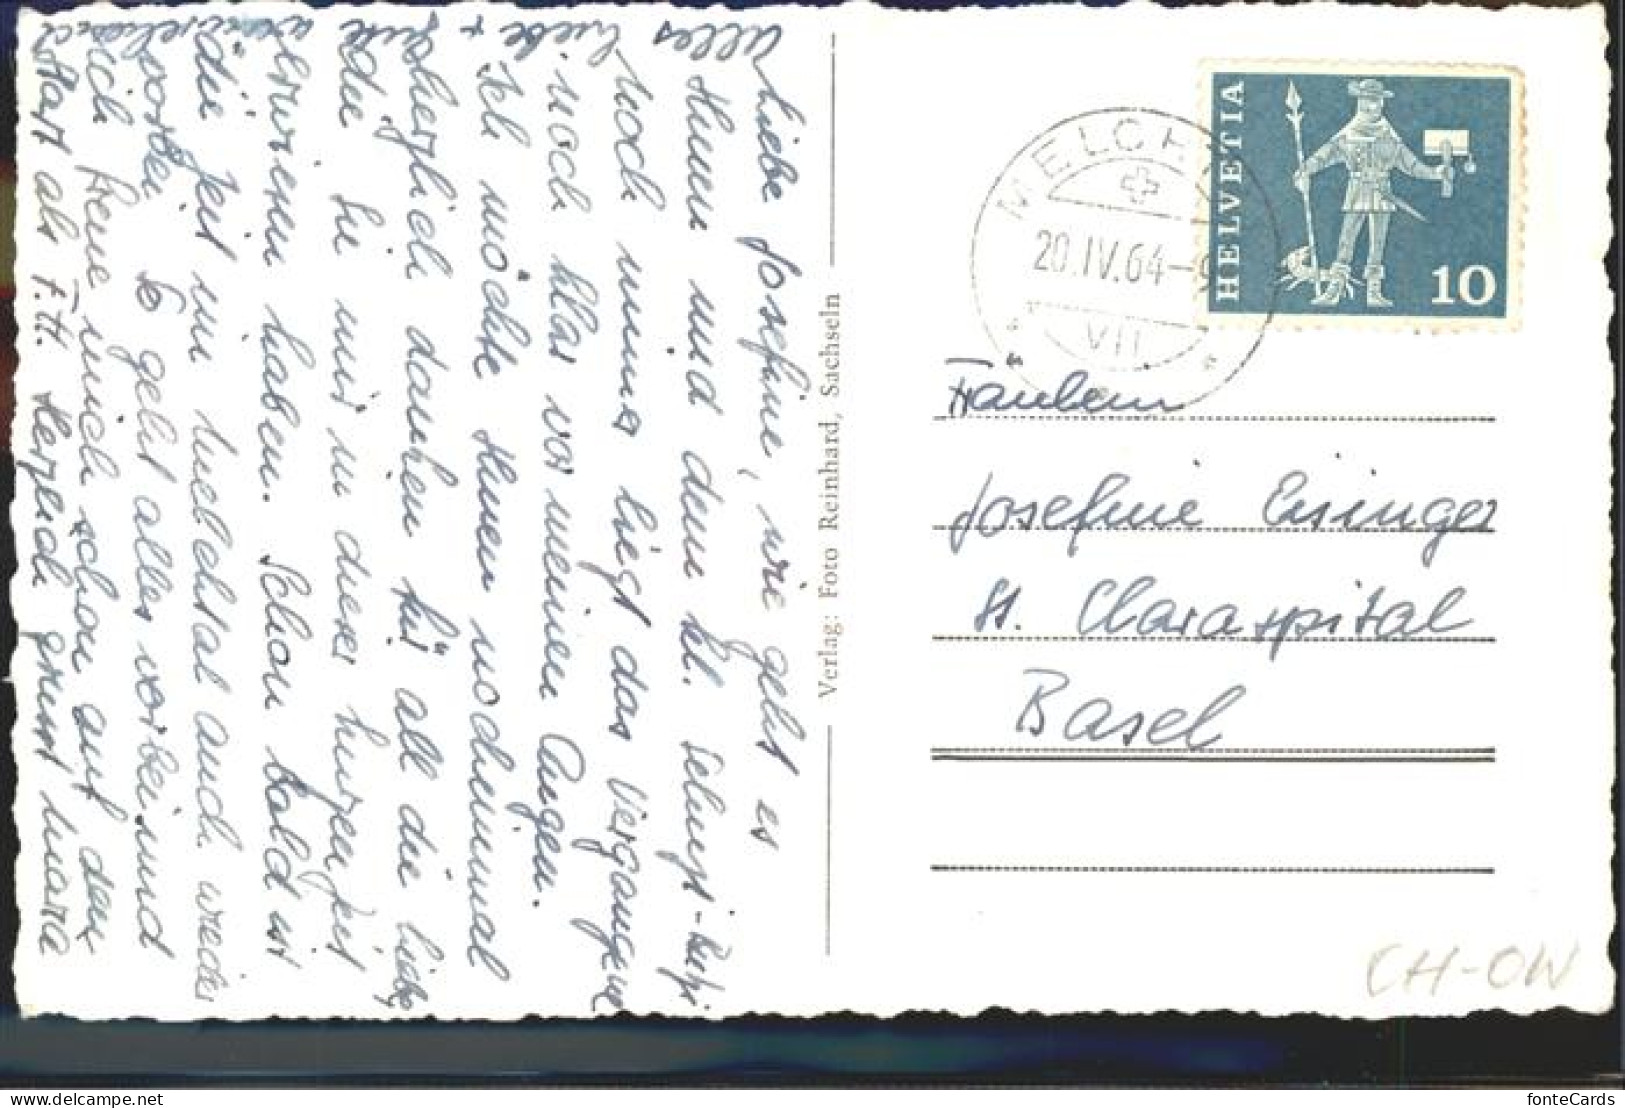 Liebe Josefine, wie geht es
Ihnen und dem kl.
Noch immer liegt das Vergangene
noch klar vor meinen Augen.
Ich möchte Ihnen nocheinmal
herzlich danken für all die liebe
die Sie mir in dieser kurzen Zeit
erwiesen haben. Schon bald ist
die Zeit im Melchtal auch wieder
vorbei. So geht alles vorbei und
ich freue mich schon auf den
Start als F.H. Herzlich grüsst Maria
alles
liebe +
gute
Verlag: Foto Reinhard, Sachseln
MELCHTAL
20.IV.64-9
VII
HELVETIA
10
Fräulein
Josefine Eisinger
St. Claraspital
Basel
CH-OW
fonteCards